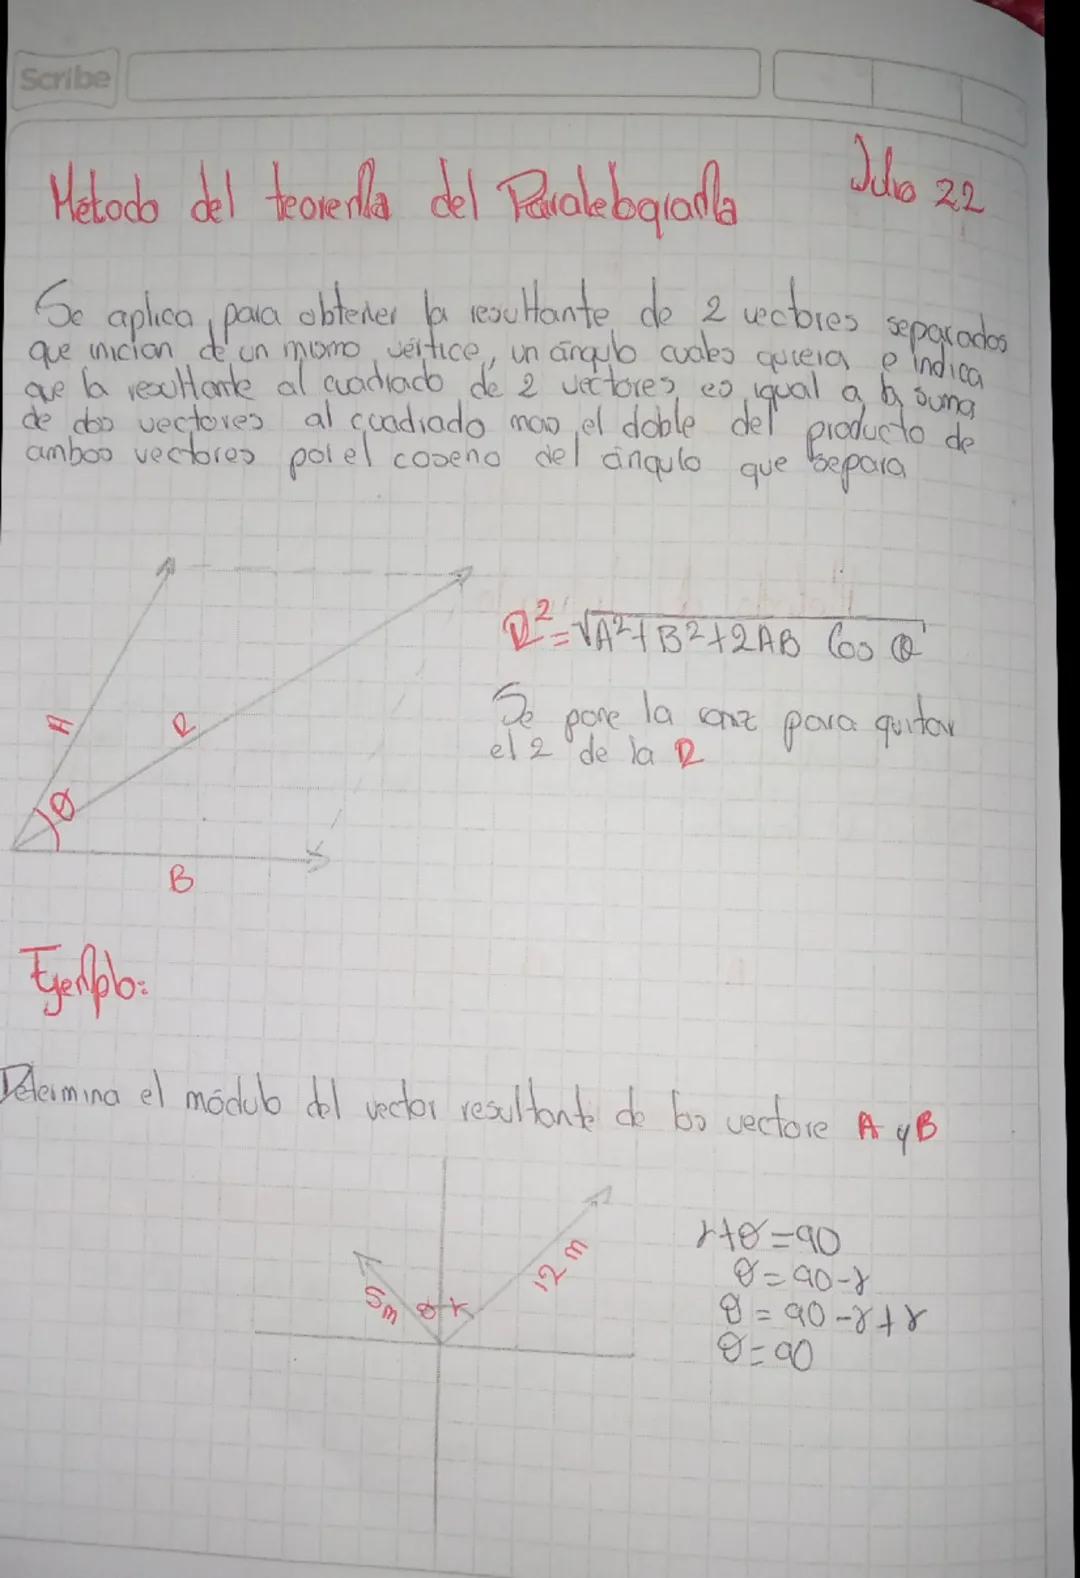 Scribe
Metodo del teorema del Paralelograma
Julio 22
Se aplica para obtener la resultante de 2 vectores separados
que inician de un mismo vértice, un ángulo cuales quiera e indica
que la resultante al cuadrado de 2 vectores es igual a la suma
de dos vectores al cuadrado mas el doble del producto de
ambos vectores por el coseno del ángulo que separa
A
R
θ
B
R²=√A²+B²+2AB Cos θ
Se pone la raiz para quitar
el 2 de la R
Ejemplo:
Determina el módulo del vector resultante de los vectore A y B
5m
θ
γ
12 m
γ+θ=90
θ=90-γ
θ=90-γ+γ
θ=90